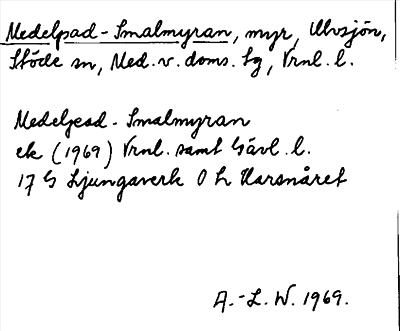 Medelpad-Smalmyran, myr, Ulvsjön,
Stöde sn, Med. v. doms. tg, Vrnl. l.
Medelpad-Smalmyran
ek (1969) Vrnl. samt Gävl. l.
17 G Ljungaverk O h Harsnåret
A.-L. W. 1969.